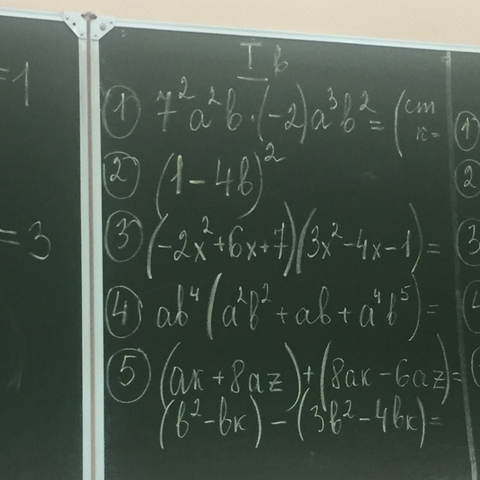 =1
=3
I в
① 7²a²b·(-2)a³b²= (ст
к=
② (1-4b)²
③ (-2x²+6x+7)(3x²-4x-1)=
④ ab⁴(a²b²+ab+a⁴b⁵)=
⑤ (aк+8az)+(8aк-6az)=
(b²-bк)-(3b²-4bк)=
①
②
③
④